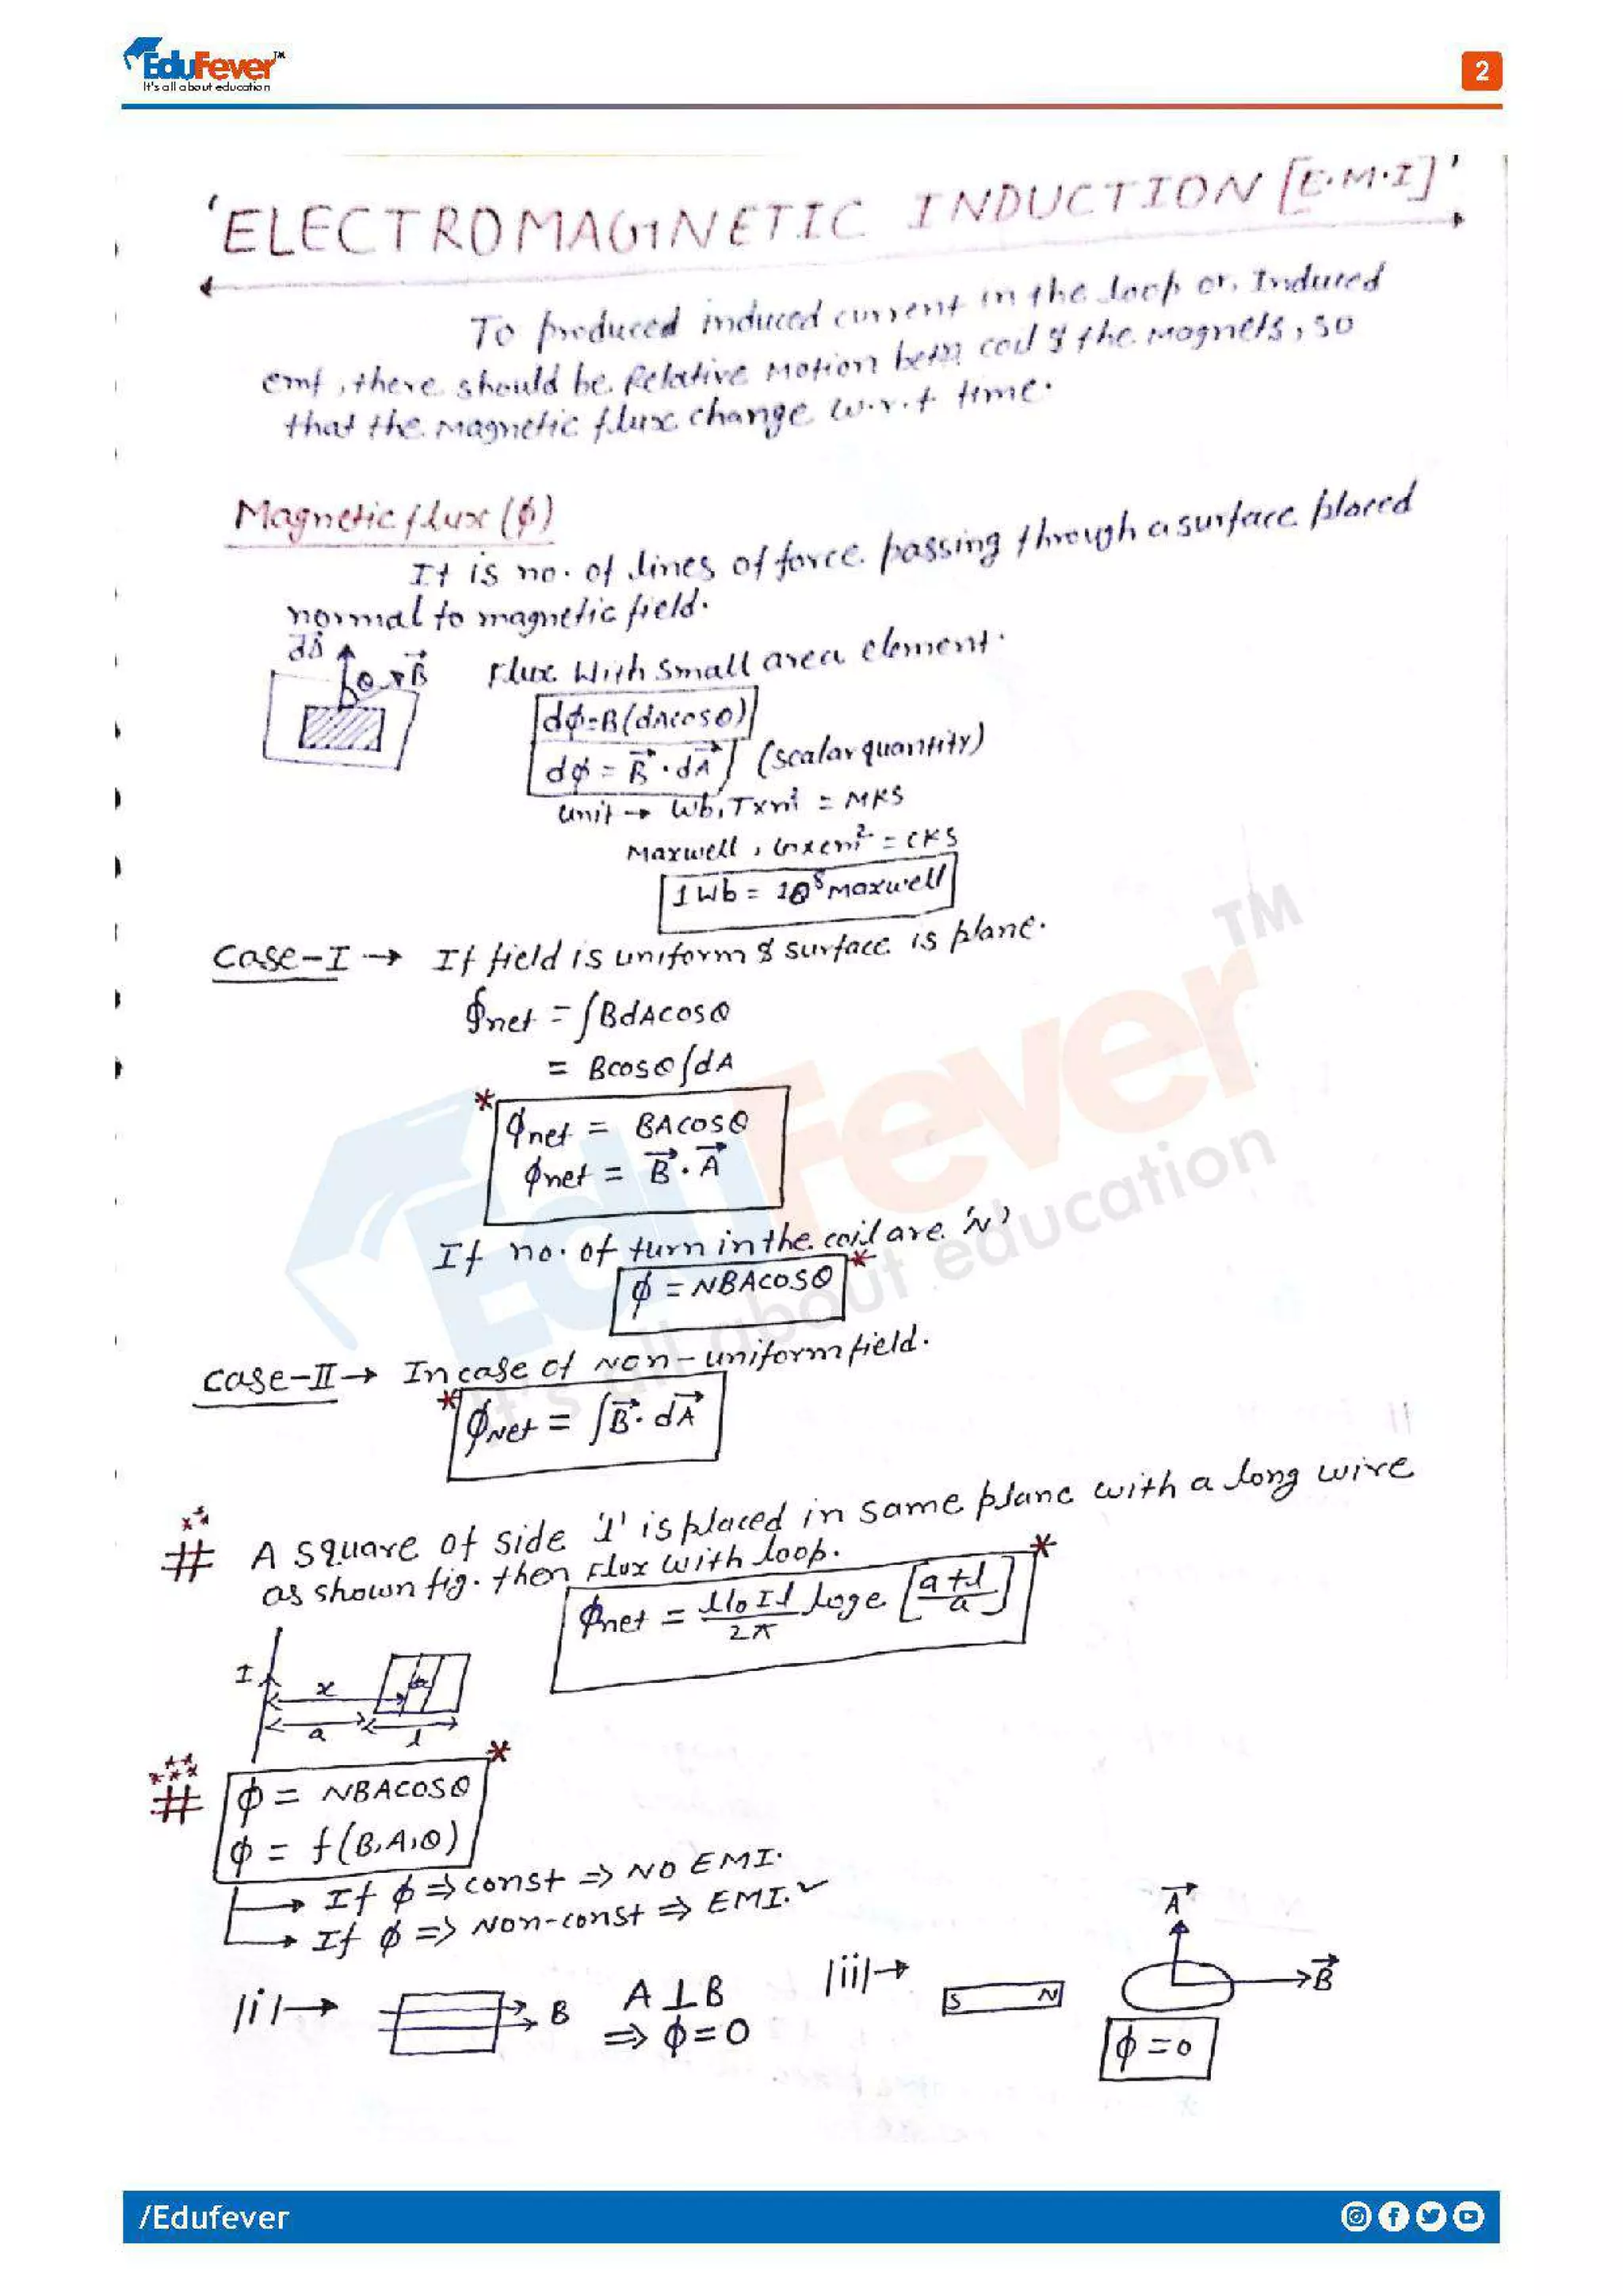 EduFever™
It's all about education
2
'ELECTROMAGNETIC INDUCTION [E.M.I]'
To produced induced current in the loop or, Induced
emf, there should be Relative Motion betn coil & the magnets, so
that the magnetic flux change w.r.t time.
Magnetic flux (ϕ)
It is no. of lines of force passing through a surface placed
normal to magnetic field.
dA⃗ θ B⃗
Flux With Small area element.
dϕ=B(dAcosθ)
dϕ = B⃗ · dA⃗ (scalar quantity)
Unit → Wb, T×m² = MKS
Maxwell, G×cm² = CKS
1 Wb = 10⁸ Maxwell
Case-I → If field is uniform & surface is plane.
ϕnet = ∫BdAcosθ
= Bcosθ∫dA
* ϕnet = BAcosθ
ϕnet = B⃗ · A⃗
If no. of turn in the coil are 'N'
ϕ = NBAcosθ *
Case-II → In case of Non-uniform field.
* ϕNet = ∫B⃗ · dA⃗
# A square of side 'l' is placed in same plane with a long wire
as shown fig. then Flux with loop.
ϕnet = μ₀Il/2π loge [a+l/a] *
I x
a l
# ϕ = NBAcosθ *
ϕ = f(B,A,θ)
→ If ϕ ⇒ const ⇒ NO EMI.
→ If ϕ ⇒ Non-const ⇒ EMI. ✓
|i| → B A ⊥ B
⇒ ϕ = 0
|ii| → S N A⃗ B⃗
ϕ = 0
/Edufever
EduFever™
It's all about education